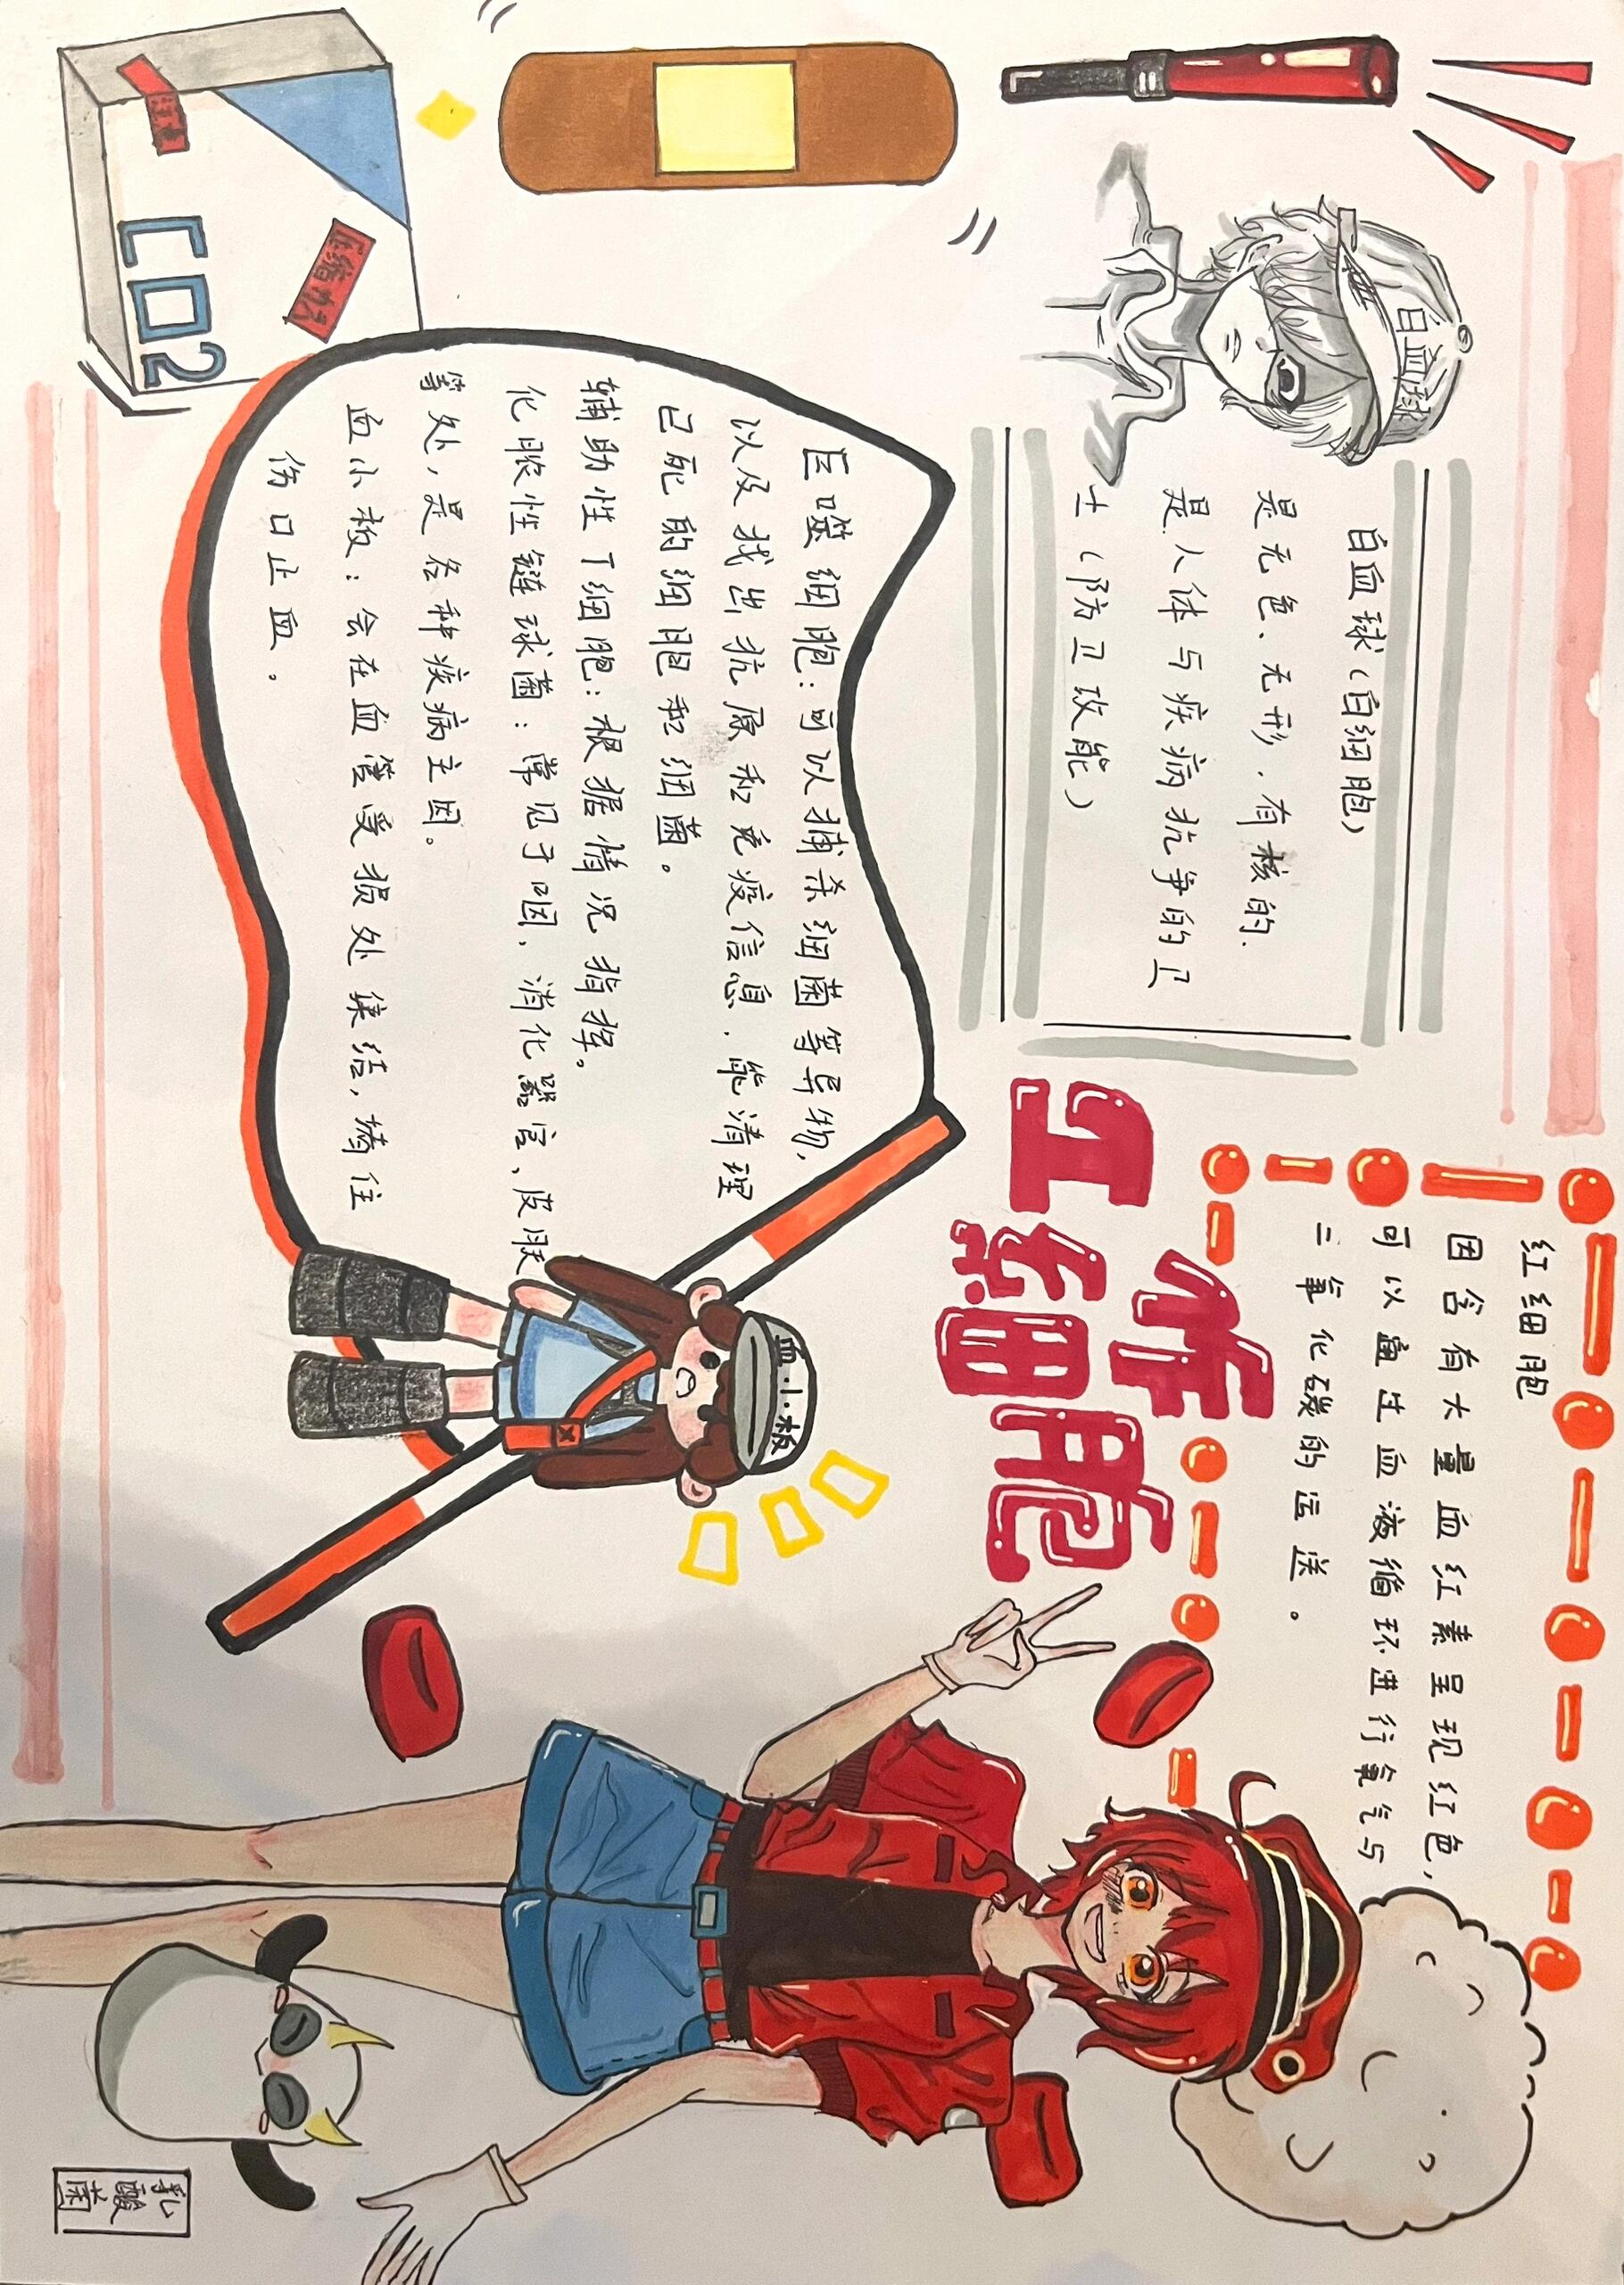 工作
细胞
白血球(白细胞)
是无色、无形、有核的.
是人体与疾病抗争的卫
士(防卫攻能)
红细胞
因含有大量血红素呈现红色,
可以通过血液循环进行氧气与
二氧化碳的运送。
巨噬细胞:可以捕杀细菌等异物,
以及找出抗原和免疫信息.能清理
已死的细胞和细菌。
辅助性T细胞:根据情况指挥。
化脓性链球菌:常见于咽、消化器官、皮肤
等处,是各种疾病主因。
血小板:会在血管受损处集结,堵住
伤口止血.
白血球
血小板
CO2
乳酸菌